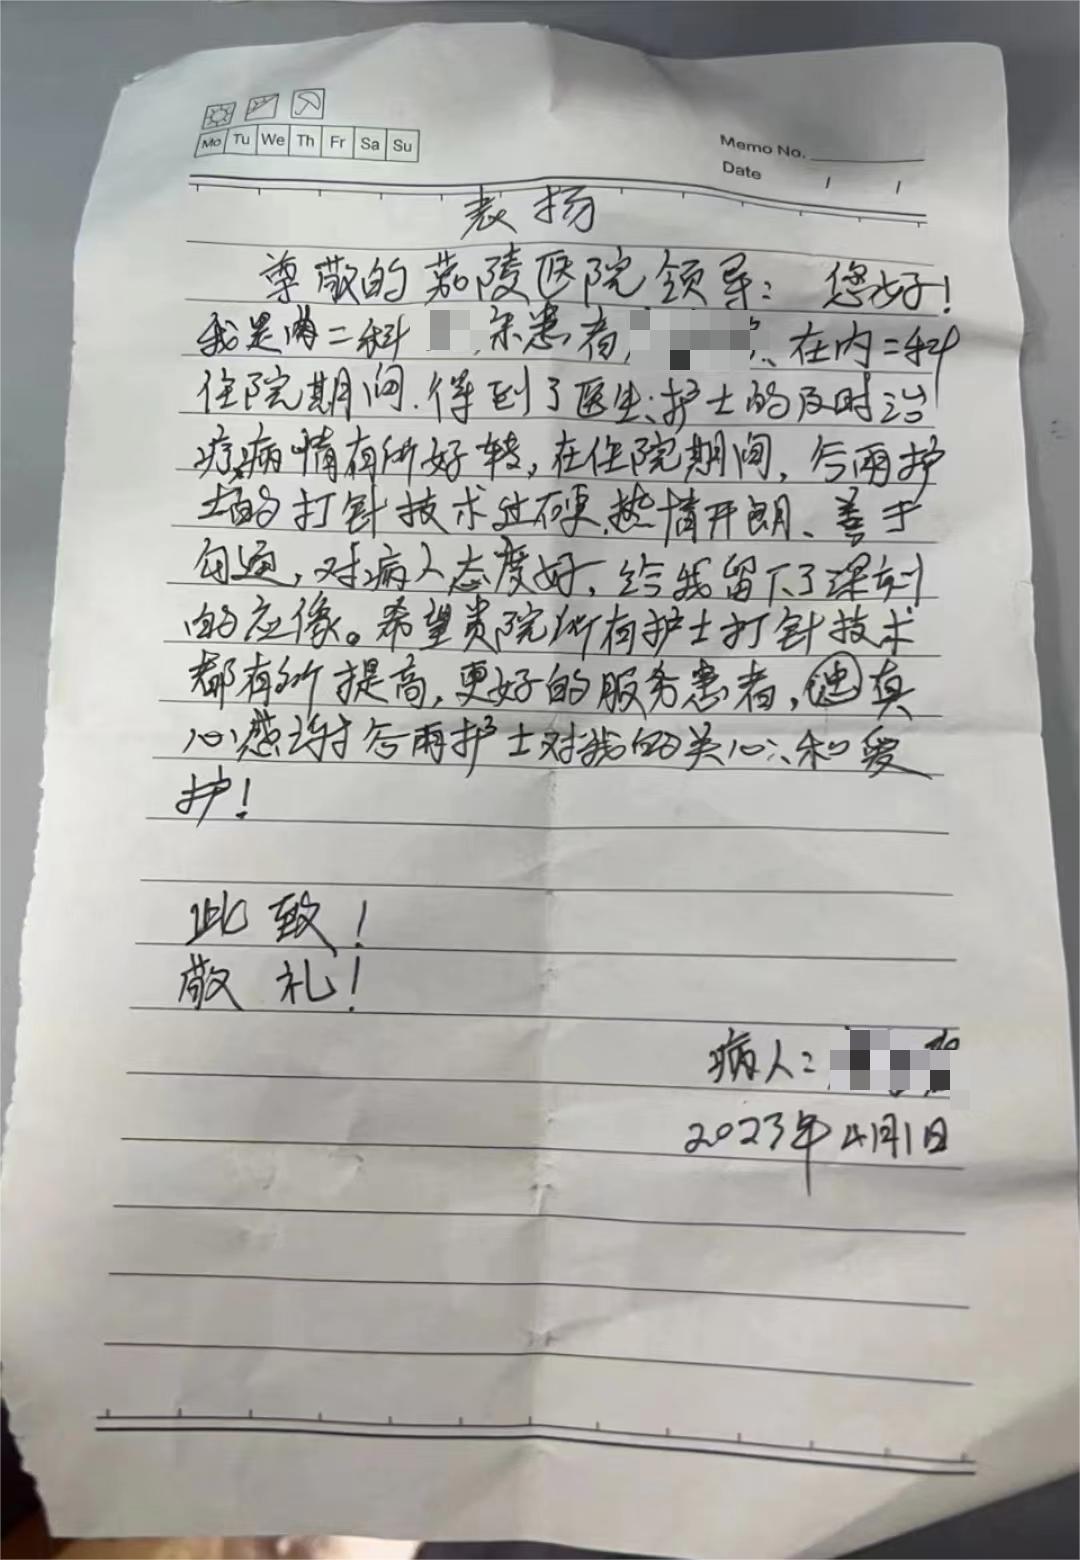 Mo Tu We Th Fr Sa Su
Memo No.
Date / /
表扬
尊敬的嘉陵医院领导：您好！
我是内二科 床患者 、在内二科
住院期间.得到了医生、护士的及时治
疗,病情有所好转，在住院期间，谷雨护
士的打针技术过硬.热情开朗、善于
勾通，对病人态度好，给我留下了深刻
的应像。希望贵院所有护士打针技术
都有所提高，更好的服务患者，真
心感谢谷雨护士对我的关心、和爱
护！
此致！
敬礼！
病人：
2023年4月1日